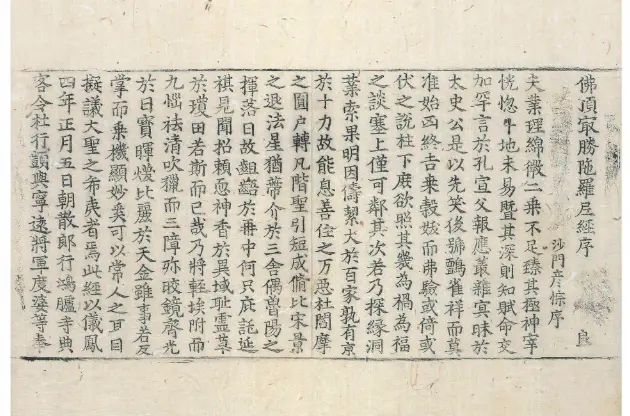 佛頂㝡勝陁羅尼經序
沙門彥悰序 良
夫業理綿微二乘不足臻其極神宰
恍惚十地未易曁其深則知賦命交
加罕言於孔宣父報應叢雜冥昧於
太史公是以先笑後號鸜雀祥而莫
准始凶終吉桒穀妖而弗驗或倚或
伏之說柱下庶欲照其幾為禍為福
之談塞上僅可鄰其次若乃探緣洞
葉索果明因儔絜大於百家孰有京
於十力故能息善住之万惡杜閻摩
之圓戶轉凡階聖引短成脩比宋景
之退法星猶蔕介於三舍偶魯陽之
揮落日故齟齬於冊中何只庇詑延
祺見聞招賴愈神香於異域耻靈草
於瓊田若斯而已哉乃將輕埃附而
九惱祛清吹獵而三障弥皎鏡齊光
於日寶暉煥比麗於天金雖事若反
掌而乘機顯妙奚可以常人之耳目
擬議大聖之希夷者焉此經以儀鳳
四年正月五日朝散郎行鴻臚寺典
客令杜行顗與寧遠將軍度婆等奉